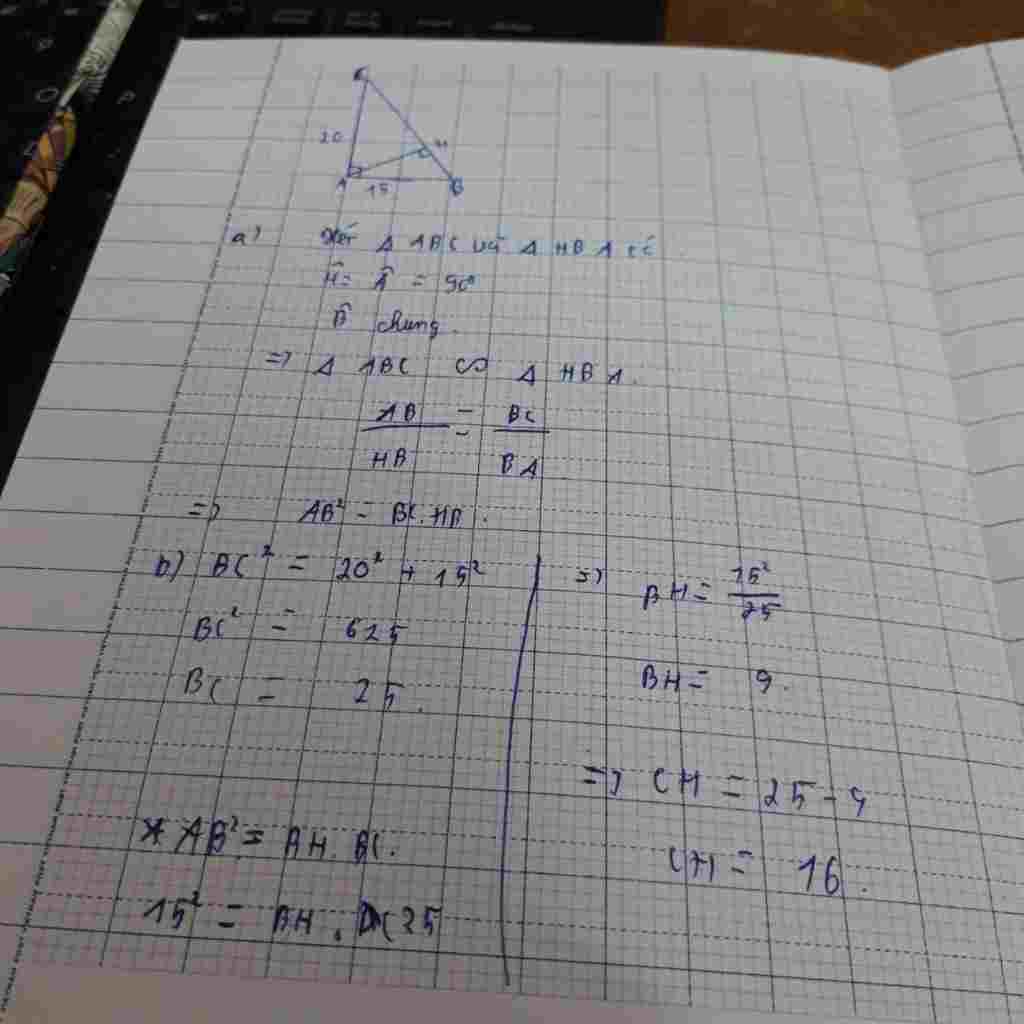 C
20
H
A
15
B
a) Xét Δ ABC và Δ HBA có
Ĥ = Â = 90°
B̂ chung.
=> Δ ABC ∽ Δ HBA.
AB/HB = BC/BA
=> AB² = BC.HB.
b) BC² = 20² + 15²
BC² = 625
BC = 25.
* AB² = BH.BC.
15² = BH.25
=> BH = 15²/25
BH = 9.
=> CH = 25 - 9
CH = 16.